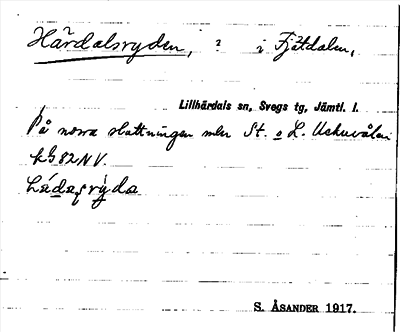 Härdalsryden, ? i Fjätdalen,
Lillhärdals sn, Svegs tg, Jämtl. l.
På norra sluttningen mlln St. o L. Uskuvålen
kb 82 NV.
S. ÅSANDER 1917.